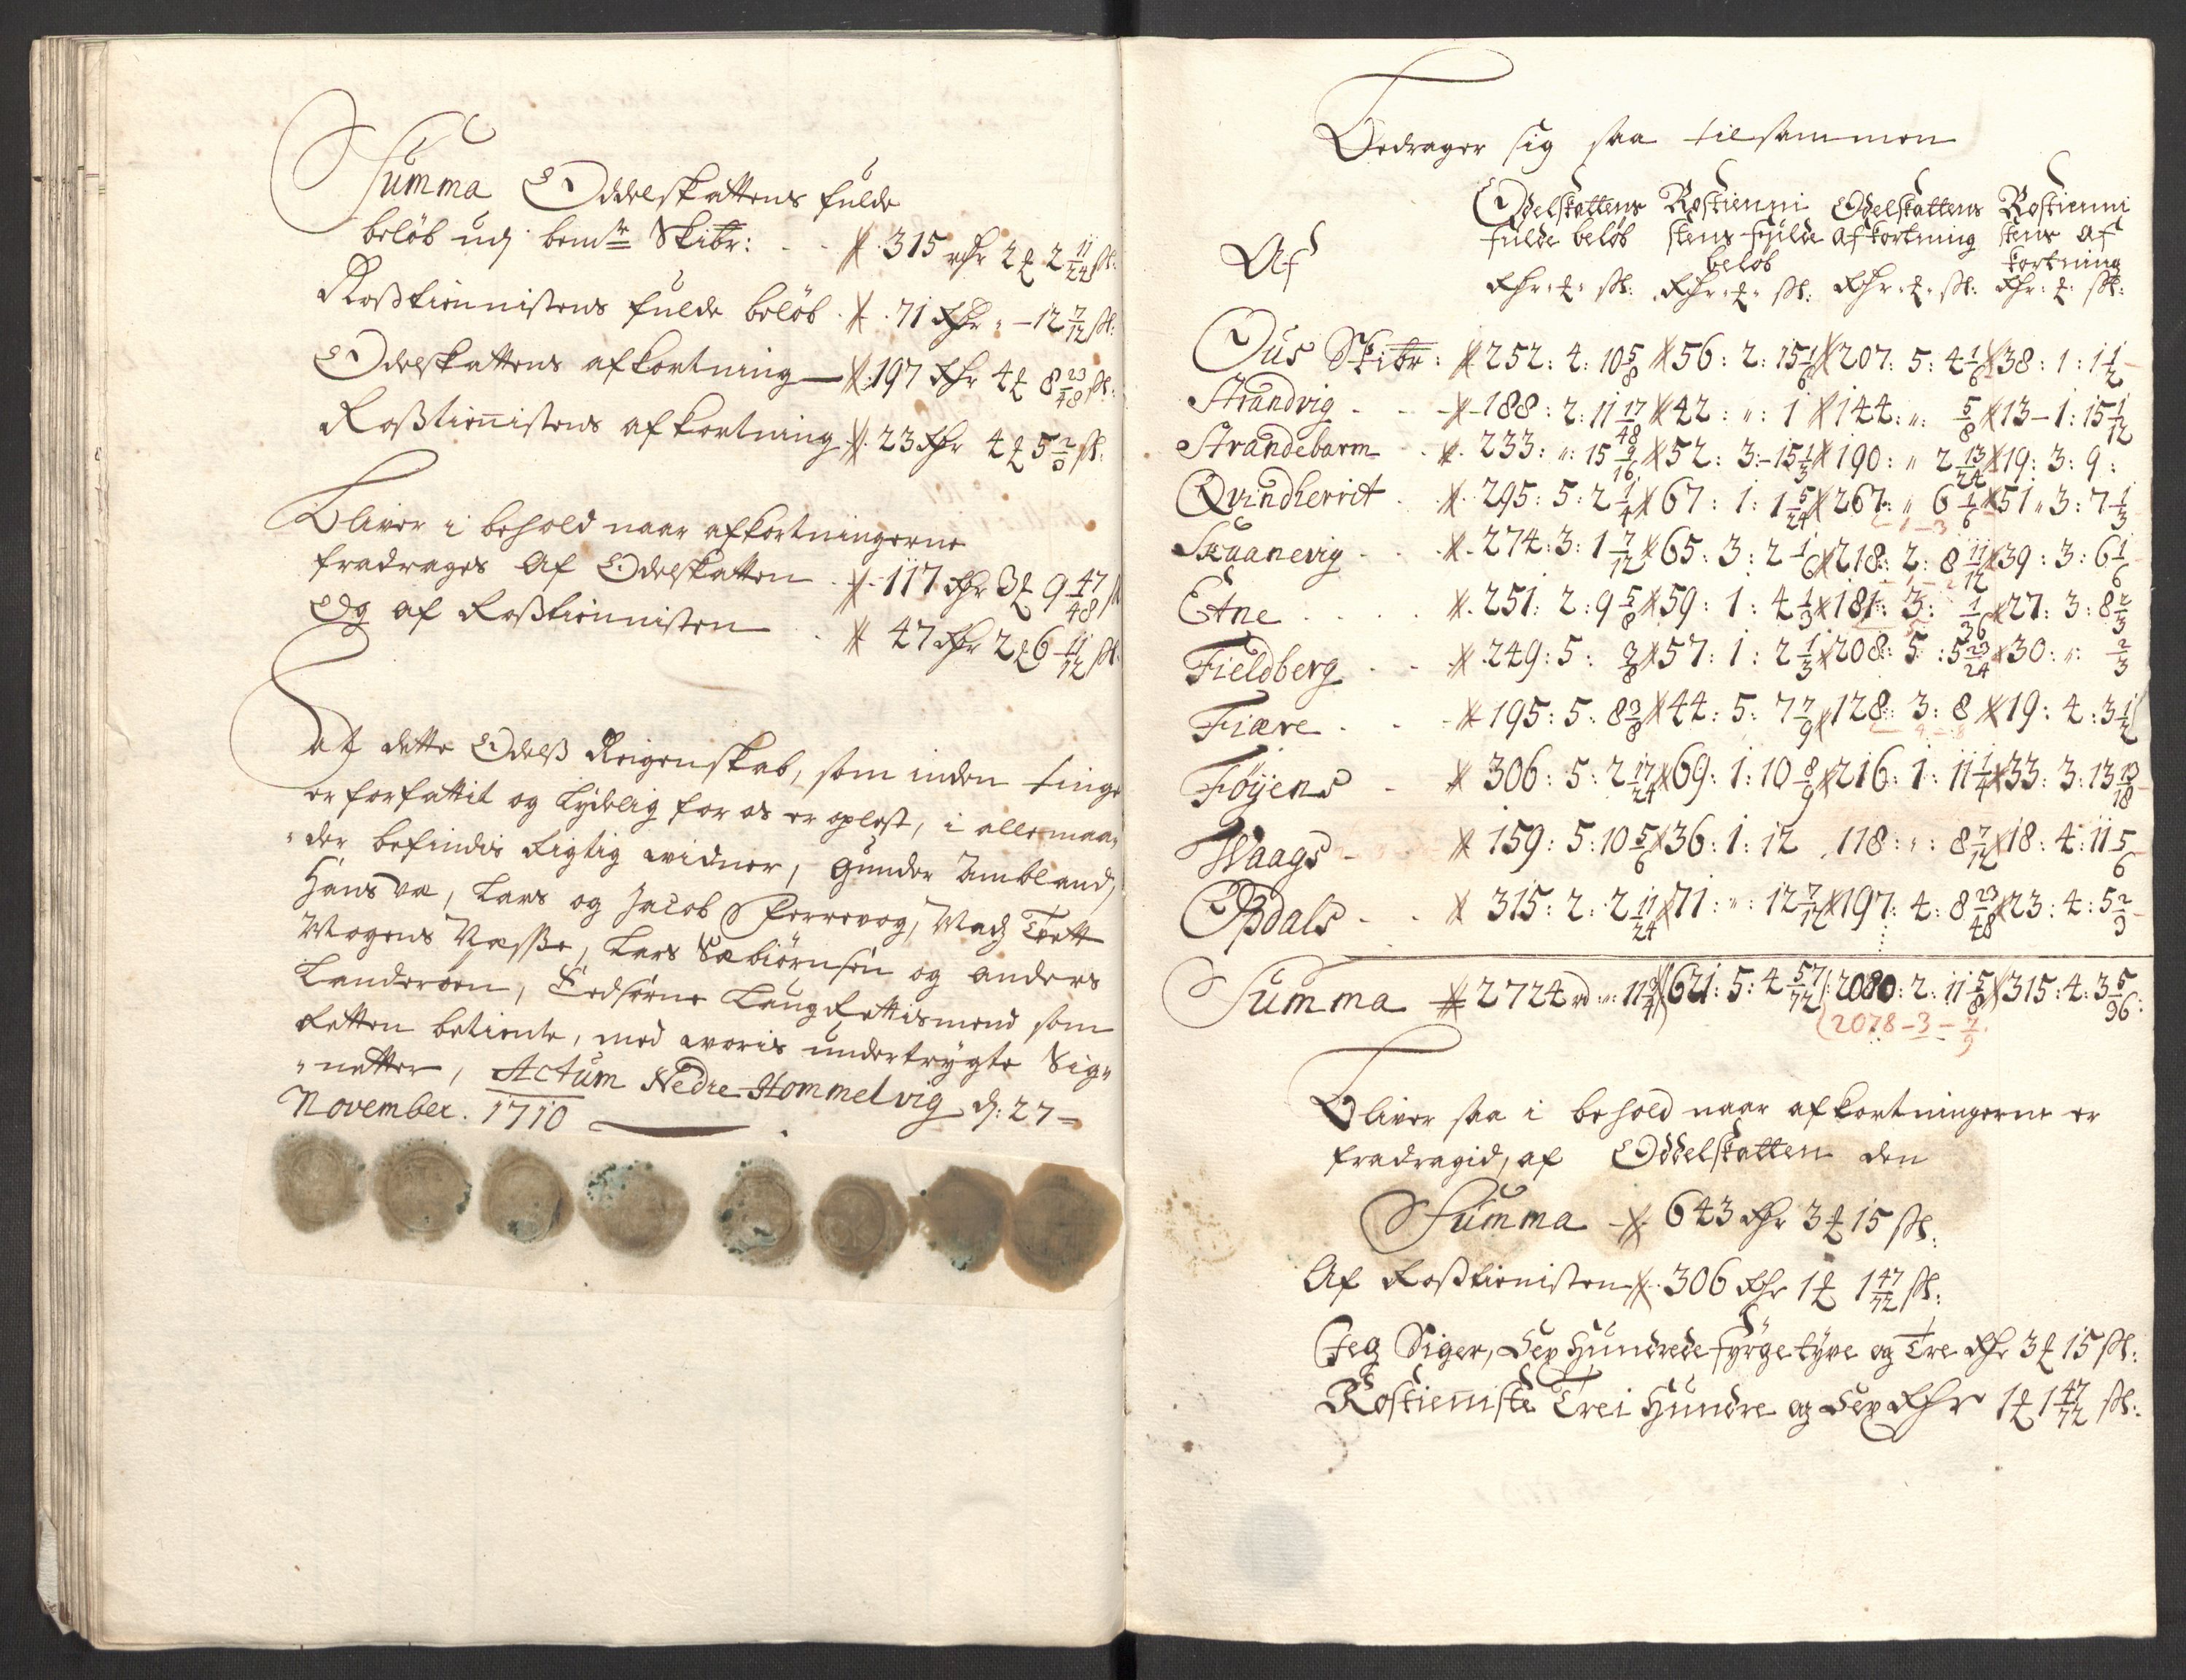 Summa Oddelskattens fulde
beløb udj bemte Skibr: ‒ ‒ # 315 rdr 2 ₰ 2 11/24 ß:
Rosstiennistens fulde beløb # 71 Rdr „ ‒ 12 7/12 ß:
Odelskattens afkortning ‒ # 197 Rdr 4 ₰ 8 23/48 ß:
Rosstienistens afkortning # 23 Rdr 4 ₰ 5 2/3 ß:
Bliver i behold naar afkortningerne
fradrages Af Odelskatten # 117 Rdr 3 ₰ 9 47/48 ß
Og af Rosstiennisten # 47 Rdr 2 ₰ 6 11/12 ß:
At dette Odelss Reigenskab, som inden tinge
er forfattit og lydelig for os er oplest, i alle maa„
„der befindis rigtig vidner, Gunder Ambland,
Hans væ, Lars og Jacob Sperrevog, Mads Tvett
Mogens Næsse, Lars Sæbiørnsøn og anders
Landerøen, Eedsorne Laug Rettismend som
Retten betiente, med voris undertrygte Sig„
„netter, Actum Nedre Hommelvig d: 27 =
November. 1710
Bedrager sig saa tilsammen
Af
Odelskattens Rostienni Odelskattens Rostienni
fulde beløb stens fulde afkortning stens af
beløb kortning
Rdr: ₰: ß: Rdr: ₰: ß: Rdr: ₰: ß: Rdr: ₰: ß:
Ous Skibr: # 252: 4: 10 5/8 # 56: 2: 15 1/6 # 207: 5: 4 1/6 # 38: 1: 1 1/2
Strandvig ‒ ‒ # 188: 2: 11 17/48 # 42: „: 1 # 144: „: 5/8 # 13 ‒ 1: 15 1/12
Strandebarm # 233: „: 15 9/16 # 52: 3: ‒ 15 1/3 # 190: „ 2 13/24 # 19: 3: 9:
Qvindherrit # 295: 5: 2 1/4 # 67: 1: 1 5/24 # 267: „ 6 1/6 # 51 „ 3: 7 1/3
Skaanevig # 274: 3: 1 7/12 # 65: 3: 2 1/6 # 218: 2: 8 11/12 # 39: 3: 6 1/6
Etne # 251: 2: 9 5/8 # 59: 1: 4 1/3 # 181: 3: 1/36 # 27: 3: 8 2/3
Fieldberg # 249: 5: 3/8 # 57: 1: 2 1/3 # 208: 5: 5 23/24 # 30: „: 2/3
Fiære # 195: 5: 8 3/8 # 44: 5: 7 7/9 # 128: 3: 8 # 19: 4: 3 1/2
Føyens # 306: 5: 2 17/24 # 69: 1: 10 8/9 # 216: 1: 11 1/4 # 33: 3: 13 13/18
Waags # 159: 5: 10 5/6 # 36: 1: 12 118: „: 8 7/12 # 18: 4: 11 5/6
Opdals # 315: 2: 2 11/24 # 71: „: 12 7/12 # 197: 4: 8 23/48 # 23: 4: 5 2/3
Summa # 2724 rd „: 11 3/4 # 621: 5: 4 57/72 # 2080: 2: 11 5/8 # 315: 4: 3 5/36:
2078 ‒ 3 ‒ 7/9.
Bliver saa i behold naar afkortningerne er
fradragid, af Oddelskatten den
Summa # 643 Rdr 3 ₰ 15 ß:
Af Rosstienisten # 306 Rdr 1 ₰ 1 47/72 ß:
Jeg Siger, Sex Hundrede fyrgetyve og Tre Rdr 3 ₰ 15 ß:
Rostienniste Trei Hundre og Sex Rdr 1 ₰ 1 47/72 ß: